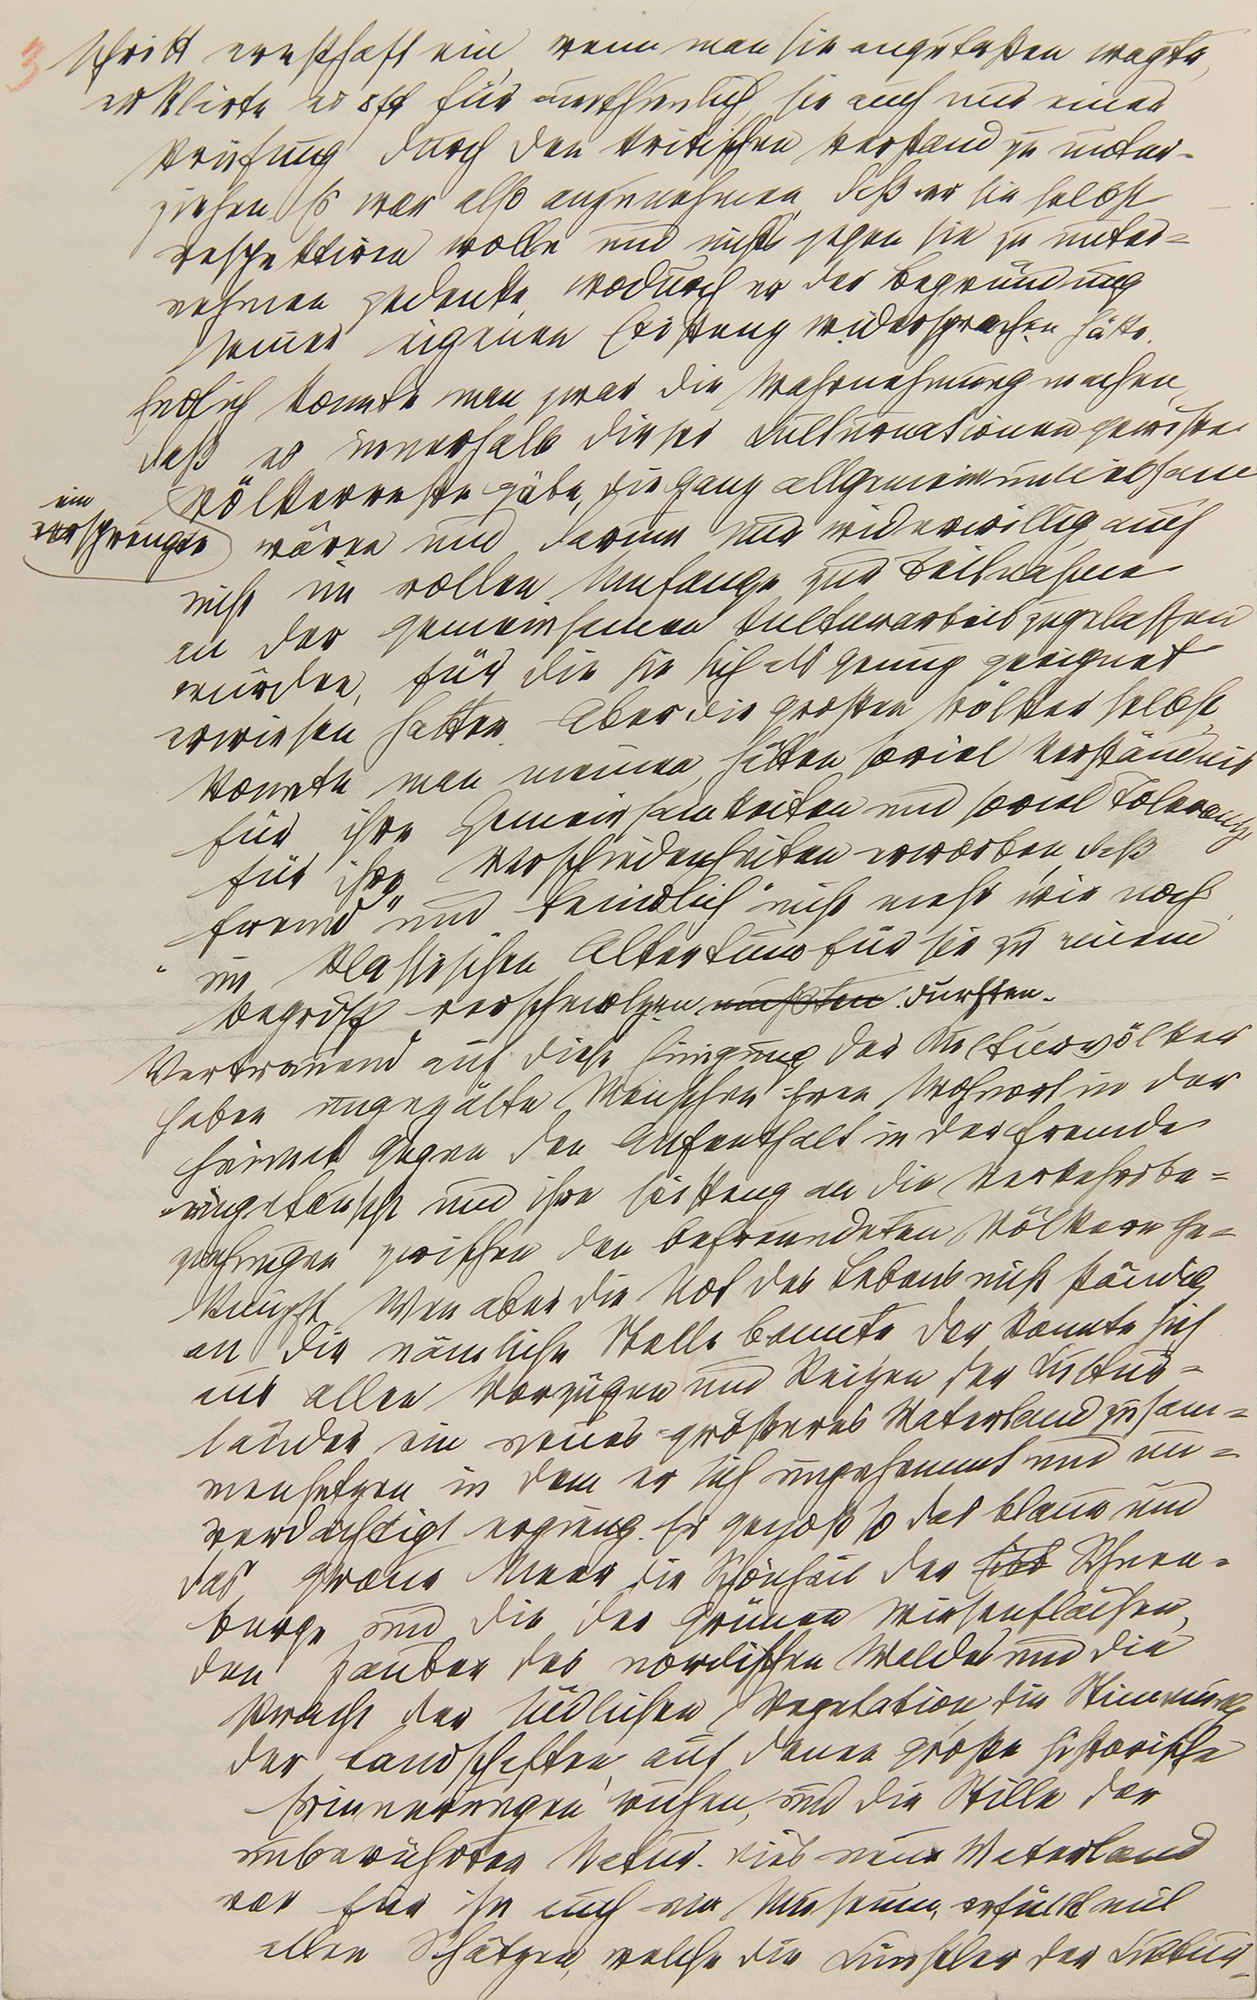 3
schritt ernsthaft ein, wenn man sie anzutasten wagte,
erklärte es oft für unthunlich, sie auch nur einer
Prüfung durch den kritischen Verstand zu unter-
ziehen. Es war also anzunehmen, daß er sie selbst
respektiren wolle und nichts gegen sie zu unter=
nehmen gedenke, wodurch er der Begründung
seiner eigenen Existenz widersprochen hätte.
Endlich konnte man zwar die Wahrnehmung machen,
daß es innerhalb dieser Kulturnationen gewisse
ein
versprengte
Völkerreste gäbe, die ganz allgemein unliebsam
wären und darum nur widerwillig, auch
nicht im vollen Umfange zur Teilnahme
an der gemeinsamen Kulturarbeit zugelassen
würden, für die sie sich als genug geeignet
erwiesen hatten. Aber die großen Völker selbst,
konnte man meinen, hätten soviel Verständnis
für ihre Gemeinsamkeiten und soviel Toleranz
für ihre Verschiedenheiten erworben, daß
„fremd" und „feindlich" nicht mehr wie noch
im klassischen Altertum für sie zu einem
Begriff verschmelzen mußten durften.
Vertrauend auf diese Einigung der Kulturvölker
haben ungezälte Menschen ihren Wohnort in der
Heimat gegen den Aufenthalt in der Fremde
eingetauscht und ihre Existenz an die Verkehrsbe=
ziehungen zwischen den befreundeten Völkern ge=
knüpft. Wen aber die Not des Lebens nicht ständig
an die nämliche Stelle bannte, der konnte sich
aus allen Vorzügen und Reizen der Kultur=
länder ein neues größeres Vaterland zusam=
mensetzen, in dem er sich ungehemmt und un=
verdächtigt erging. Er genoß so das blaue und
das graue Meer, die Schönheit der Schnee=
berge und die der grünen Wiesenflächen,
den Zauber des nordischen Waldes und die
Pracht der südlichen Vegetation, die Stimmung
der Landschaften, auf denen große historische
Erinnerungen ruhen, und die Stille der
unberührten Natur. Dies neue Vaterland
war für ihn auch ein Museum, erfüllt mit
allen Schätzen, welche die Künstler der Kultur=